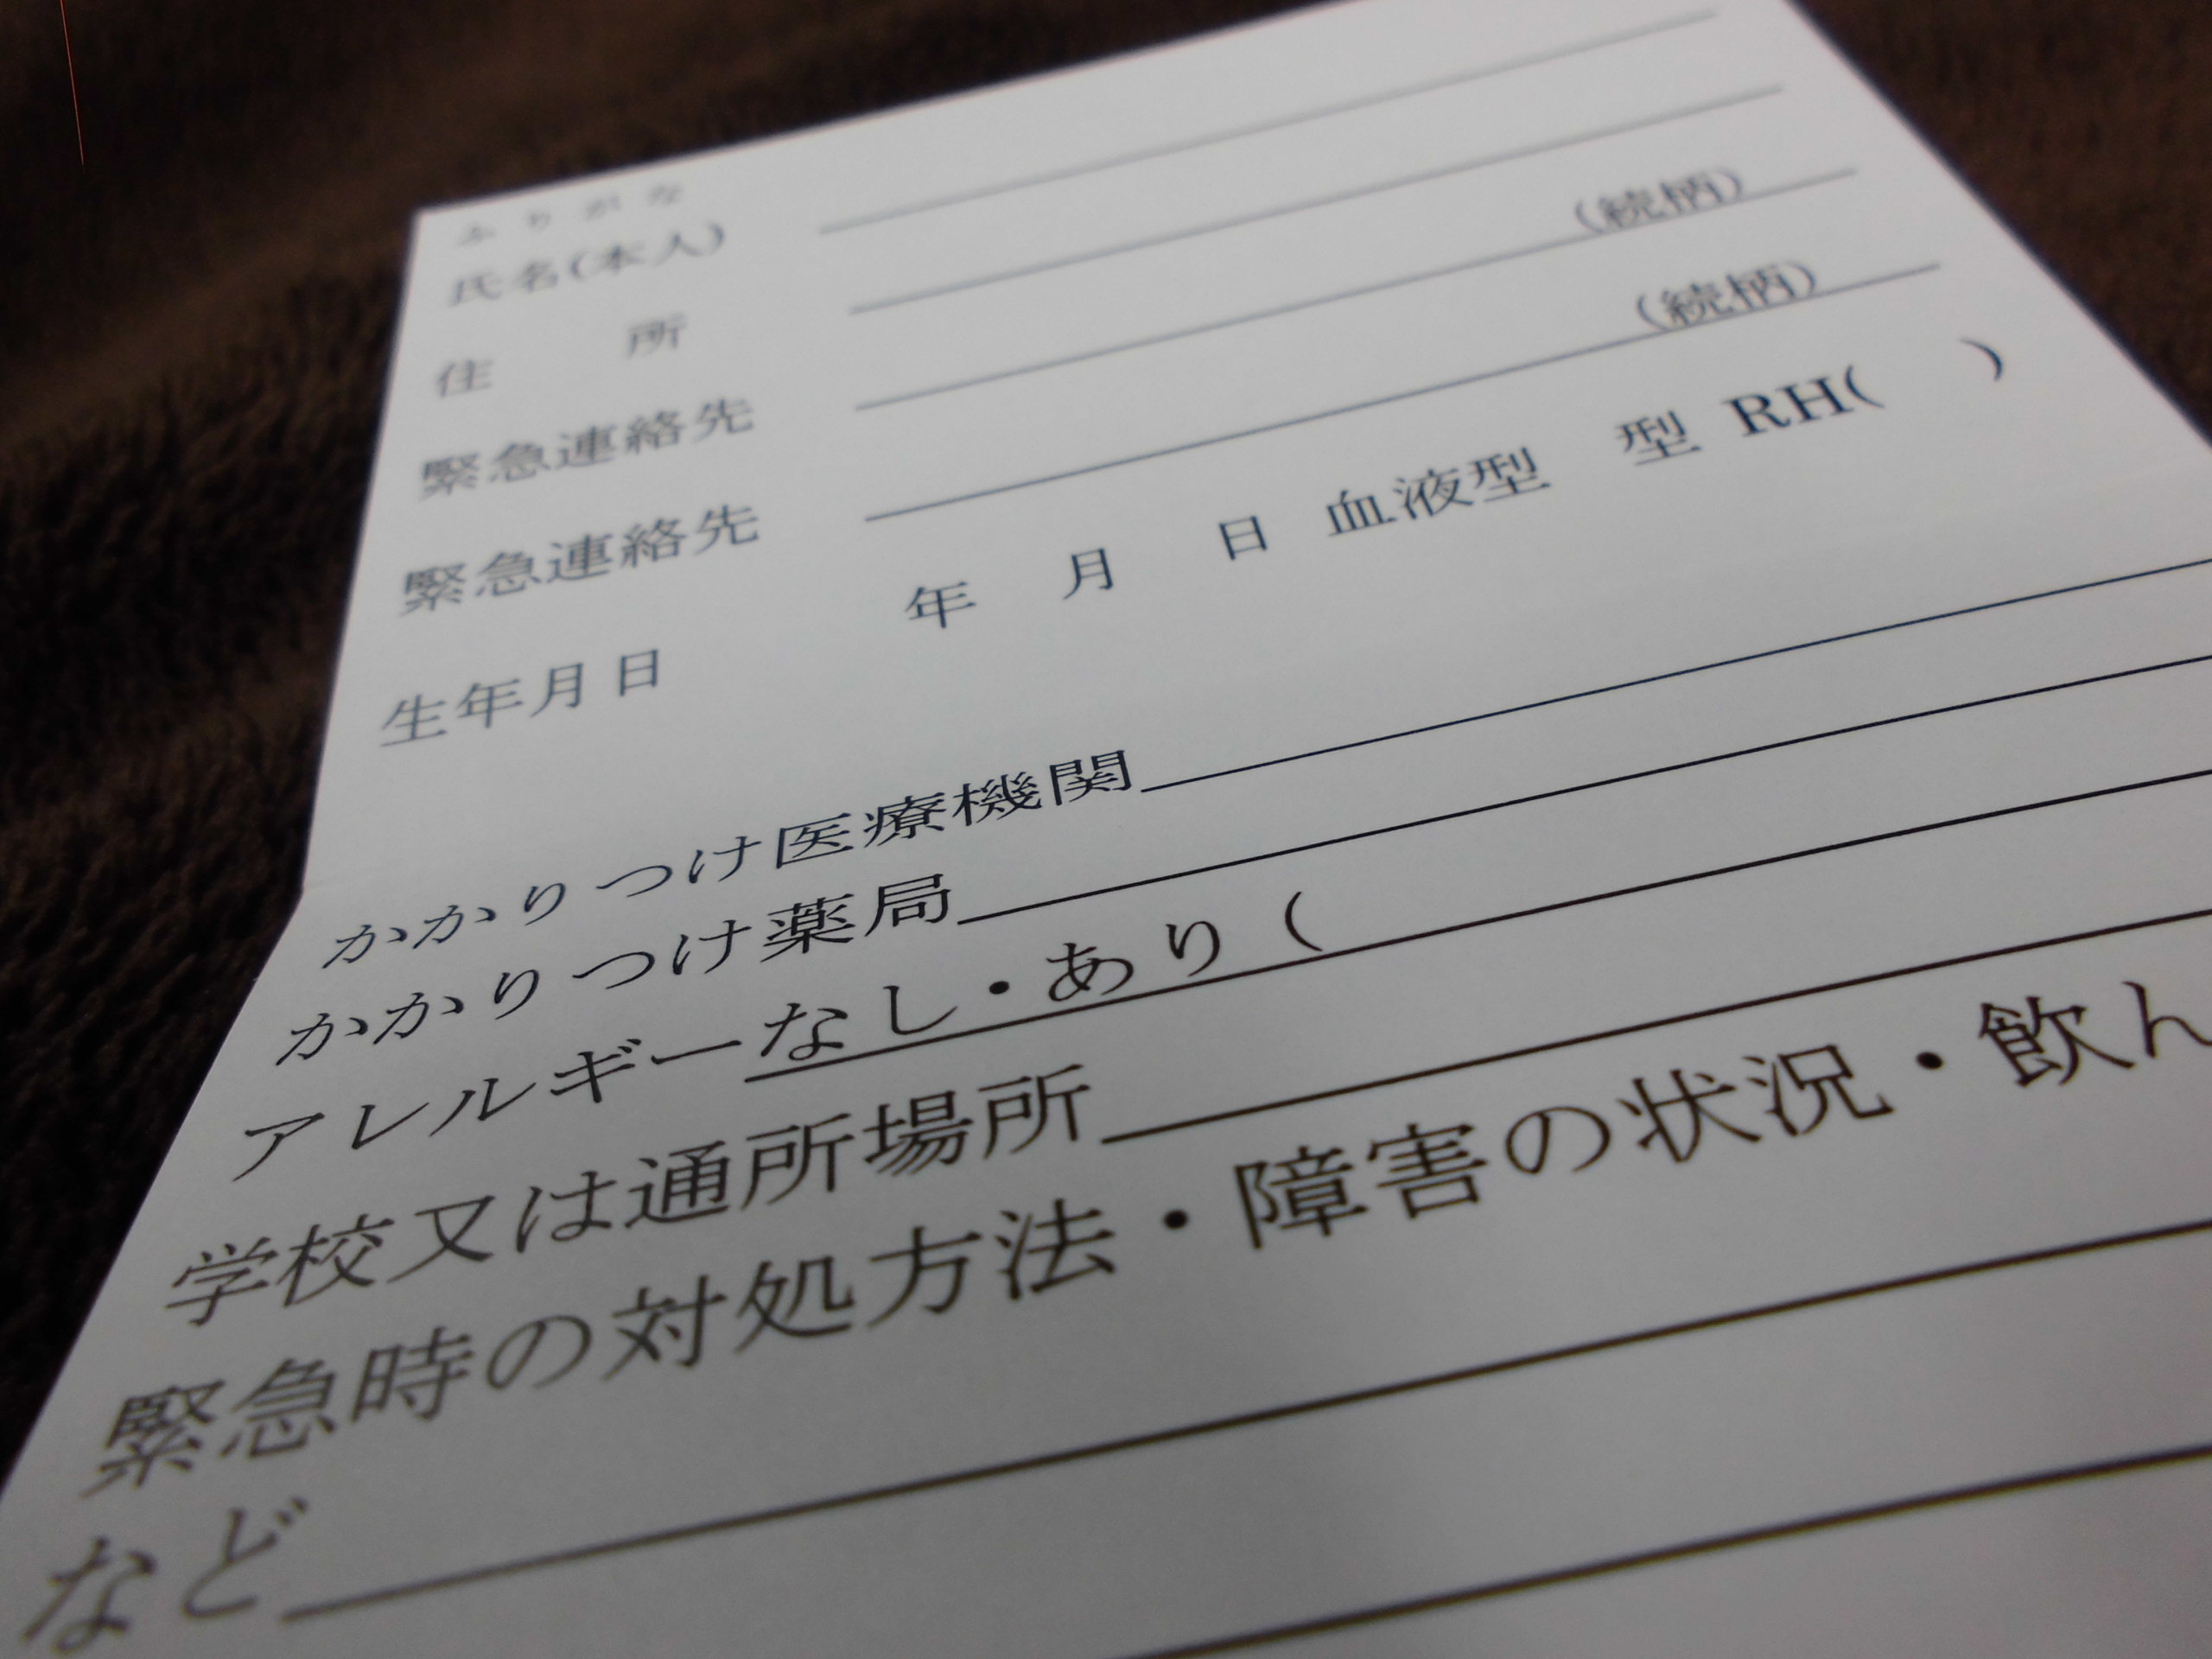 ふりがな
氏名(本人)
住所
緊急連絡先 (続柄)
緊急連絡先 (続柄)
生年月日 年 月 日 血液型 型 RH( )
かかりつけ医療機関
かかりつけ薬局
アレルギーなし・あり(
学校又は通所場所
緊急時の対処方法・障害の状況・飲ん
など